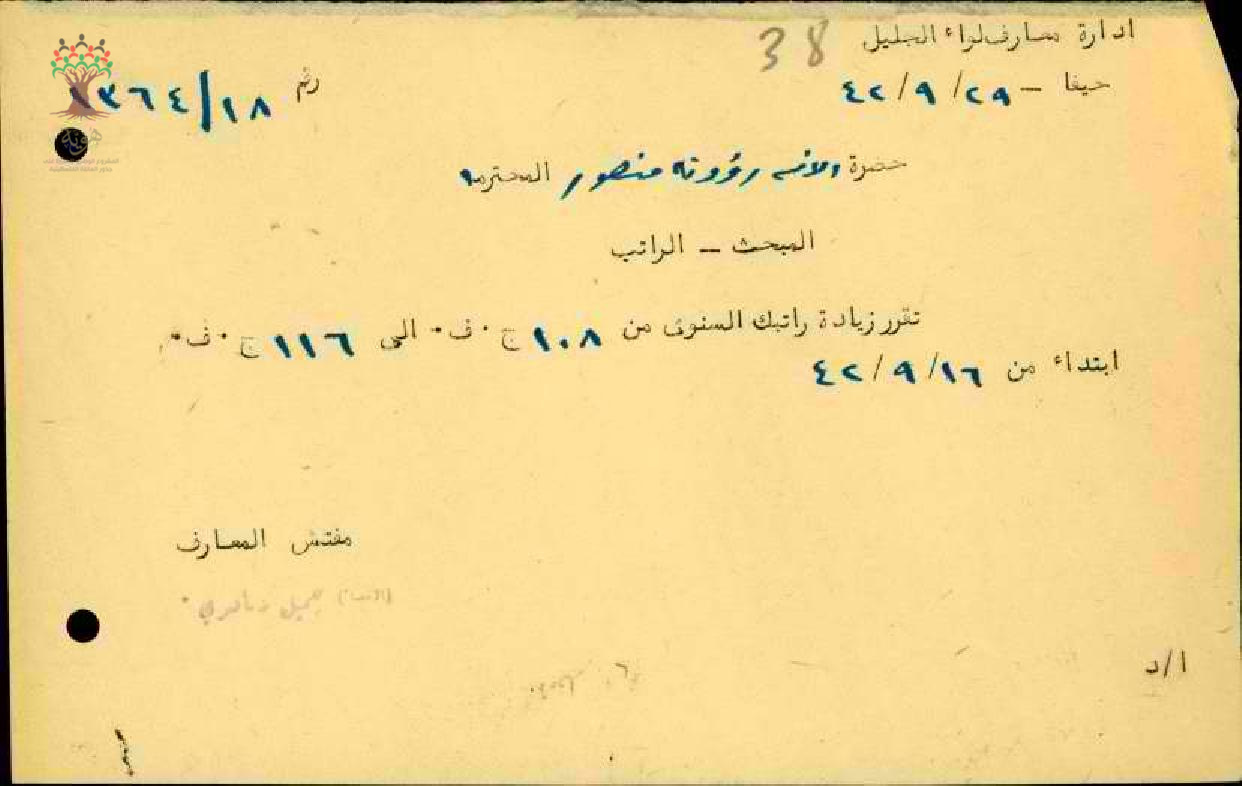 ادارة معارف لواء الجليل
38
حيفا - ٢٩/ ٩/ ٤٢
رقم ١٣٦٤/١٨
هوية
حضرة الآنسه منصور المحترمه
المبحث - الراتب
تقرر زيادة راتبك السنوى من ١٠٨ ج ٠ ف ٠ الى ١١٦ ج ٠ ف ٠
ابتداء من ١٦/ ٩/ ٤٢
مفتش المعارف
جميل
ا/د